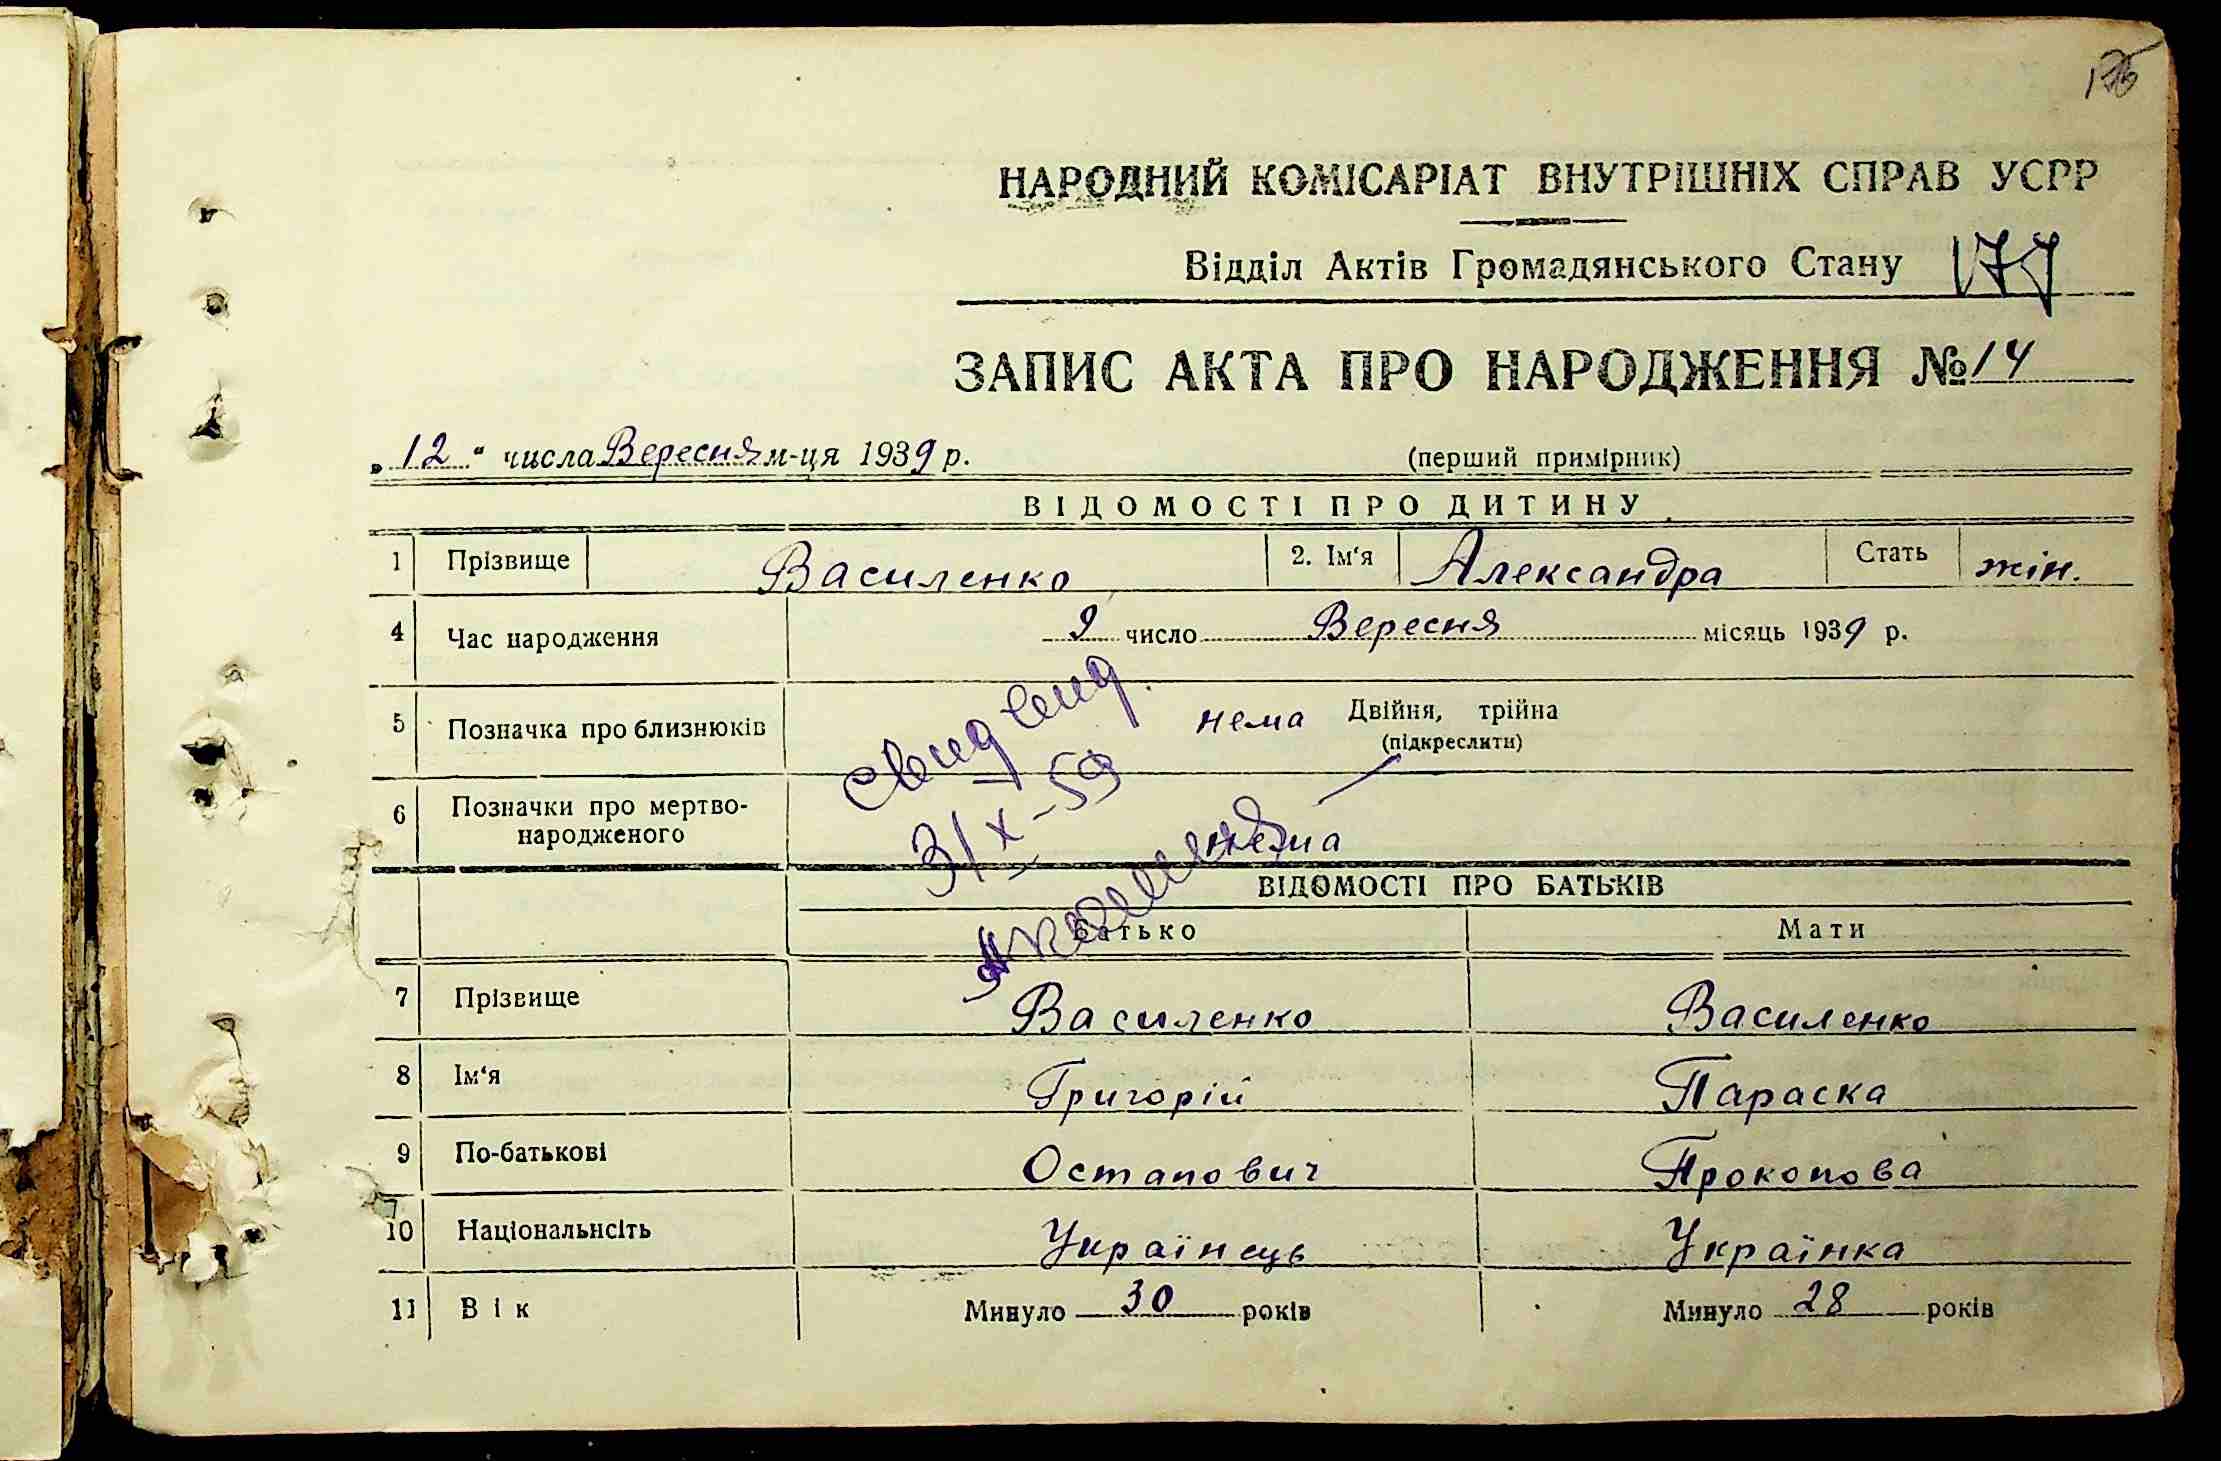 НАРОДНИЙ КОМІСАРІАТ ВНУТРІШНІХ СПРАВ УСРР
Відділ Актів Громадянського Стану
ЗАПИС АКТА ПРО НАРОДЖЕННЯ № 14
„12" числа Вересня м-ця 1939 р. (перший примірник)
ВІДОМОСТІ ПРО ДИТИНУ
1 Прізвище Василенко 2. Ім'я Александра Стать жін.
4 Час народження 9 число Вересня місяць 1939 р.
5 Позначка про близнюків нема Двійня, трійна
(підкреслити)
31/X-59
6 Позначки про мертво-
народженого нема
ВІДОМОСТІ ПРО БАТЬКІВ
Батько Мати
7 Прізвище Василенко Василенко
8 Ім'я Григорій Параска
9 По-батькові Остапович Прокопова
10 Національнсіть Українець Українка
11 Вік Минуло 30 років Минуло 28 років